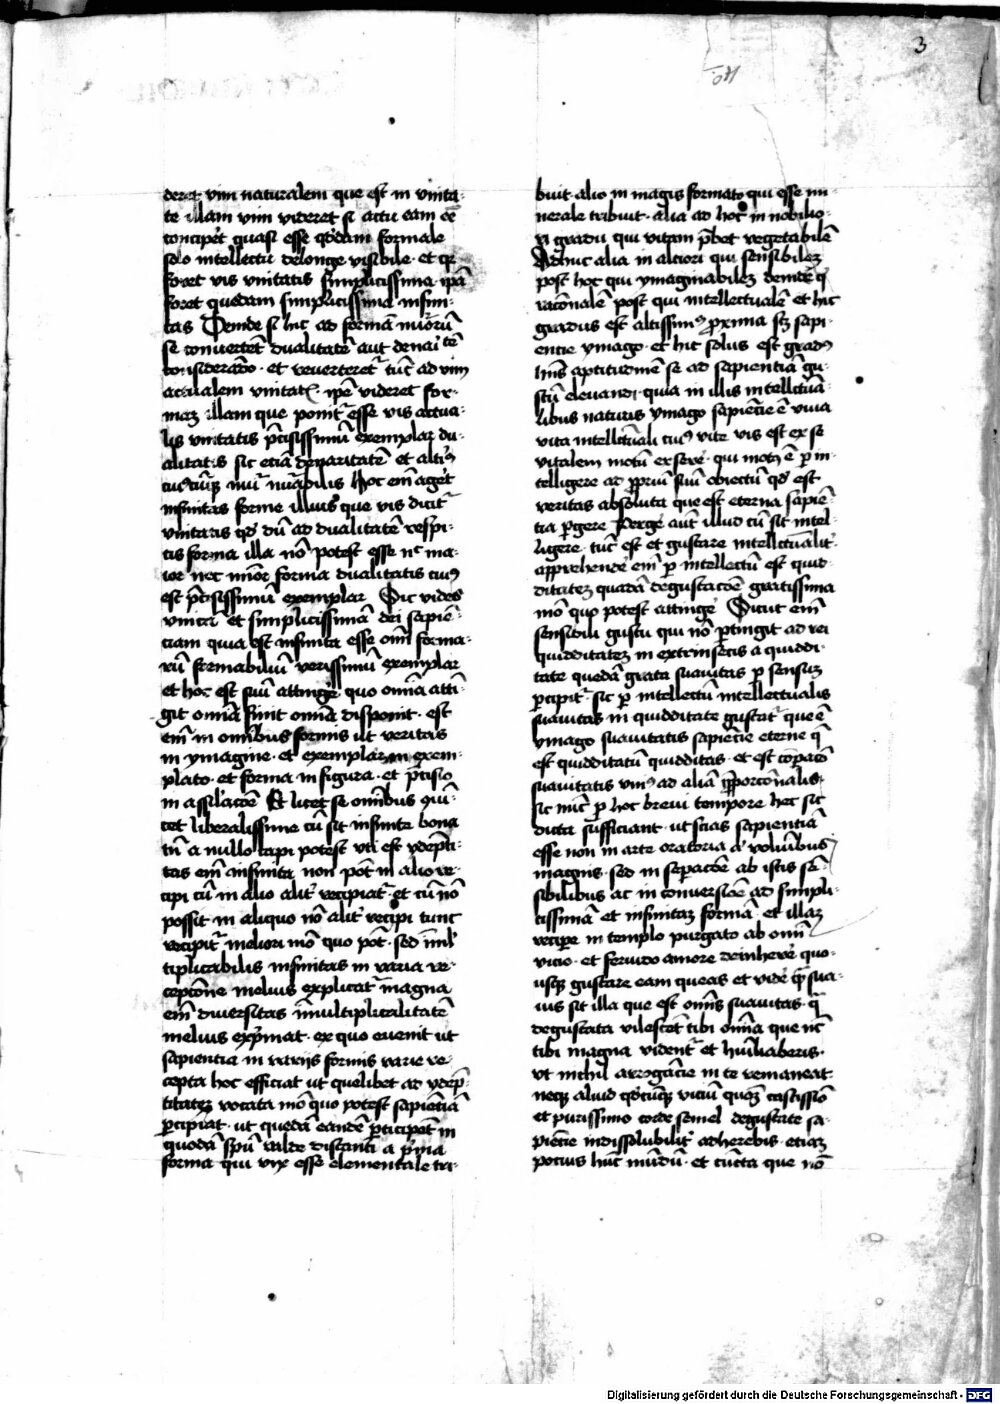 3
deret vim naturalem que est in vnita-
te illam vim videret si actu eam eē
conciperet quasi esse qōdam formale
solo intellectu delonge visibile · et qr
foret vis vnitatis simplicissima ipā
foret quedam simplicissima infini-
tas Deinde si hic ad formā nūorū
se converteret dualitatē aut denaitē
considerādo · et reverteretr tūc ad vim
actualem vnitatis ipē videret for-
mam illam que ponitr esse vis actua-
lis vnitatis p̄cisissimū exemplar du-
alitatis sic etiā denaritatē et altius
cuiuscūq nūi nūabilis Hoc em̄ aget
infinitas forme illius que vis dicitr
vnitatis qd dū ad dualitatē respi-
cis forma illa nō potest esse nc ma-
ior nec mīor forma dualitatis cuius
est p̄cisissimū exemplar Sic vides
vnicā et simplicissimā dei sapiē-
ciam quia est infinita esse oīm forma-
rū formabiliū verissimū exemplar
et hoc est suū attinge quo omīa atti-
git omīa finit omīa disponit · est
em̄ in omībus formis ut veritas
in ymagine · et exemplar in exem-
plato · et forma in figura · et p̄cisio
in assilacōe Et licet se omībus cōi-
cet liberalissime cū sit infinite bona
tn̄ a nullo capi potest vti est ydepti-
tas em̄ infinita non pōt in alio re-
cipi cū in alio alitr recipiatr et cū nō
possit in aliquo nō alitr recipi tunc
recipitr meliori mō quo pōt · sed īml
tiplicabilis infinitas in varia re-
cepcōne melius explicatr magna
em̄ diversitas īmultiplicalitatē
melius exp̄mat · ex quo evenit ut
sapientia in varijs formis varie re-
cepta hoc efficiat ut quelibet ad ydep-
titatez vocata mō quo potest sapiētiā
p̄cipiat · ut quedā eandē p̄ticipet in
quodā sp̄u valde distanti a p̄ma
forma qui vix esse elementale tri-
buit alio in magis formato qui esse mi-
nerale tribuit · alia ad hoc in nobilio-
ri gradu qui vitam p̄bet vegetabilē
Adhuc alia in altiori qui sensibilez
post hoc qui ymaginabilez deinde q
raconalē post qui intellectualē et hic
gradus est altissimus proxima scz sapi-
entie ymago · et hic solus est gradus
hns aptitudinē se ad sapientiā gu-
stū elevandi · quia in illis intellectua-
libus naturis ymago sapiēcie ē viva
vita intellectuali cuius vite vis est ex se
vitalem motū exsere · qui motus ē p in-
telligere ad p̄priū suū obiectū qd est
veritas absoluta que est eterna sapiē-
tia p̄gere Perge aut illud cū sit intel-
ligere · tūc est et gustare intellectualit
apprehendē em̄ p intellectū est quid-
ditatez quadā degustacōe gratissima
mō quo potest attinge Sicut em̄
sensibili gustu qui nō p̄tingit ad rei
quidditatez in extrinsecis a quiddi-
tate quedā grata suavitas p sensum
p̄cipitr sic p intellectū intellectualis
suavitas in quidditate gustatr que ē
ymago suavitatis sapiēcie eterne q̄
est quidditatū quidditas · et est cōpacō
suavitatis vnius ad aliā ip̄porcōnalis
sic nūc p hoc brevi tempore hec sic
dicta sufficiant · ut scias sapientiā
esse non in arte oratoria aut volūibus
magnis · sed in sep̄acōe ab istis sē-
sibilibus ac in conversiōe ad simpli-
cissimā et infinitam formā · et illam
recipe in templo purgato ab omī
vicio · et fervido amore deinhere quo-
usqz gustare eam queas et vide q̄sua-
vis sit illa que est omīs suavitas · q̄
degustata vilescet tibi omīa que nc
tibi magna videntr et humiliaberis ·
vt nichil arrogācie in te remaneat
neqz aliud qdcūqz viciū quā castissiō
et purissimo corde semel degustate sa-
piētie indissolubilitr adherebis · etiam
potius hūc mūdū · et cūcta que nō
Digitalisierung gefördert durch die Deutsche Forschungsgemeinschaft - DFG